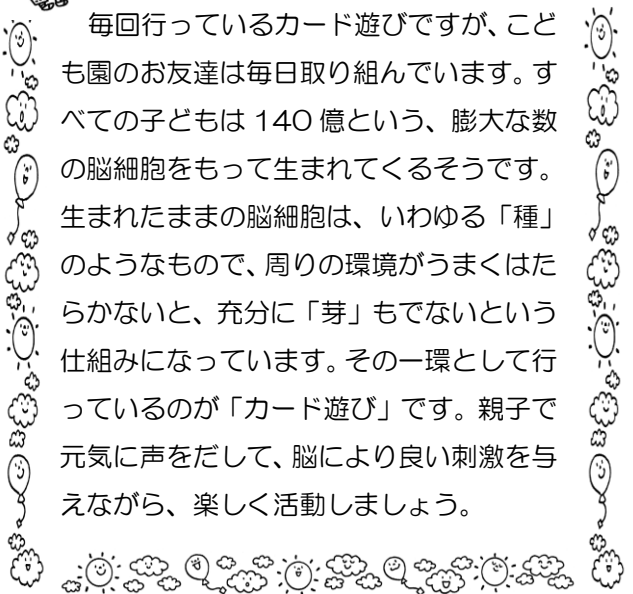 毎回行っているカード遊びですが、こど
も園のお友達は毎日取り組んでいます。す
べての子どもは 140 億という、膨大な数
の脳細胞をもって生まれてくるそうです。
生まれたままの脳細胞は、いわゆる「種」
のようなもので、周りの環境がうまくはた
らかないと、充分に「芽」もでないという
仕組みになっています。その一環として行
っているのが「カード遊び」です。親子で
元気に声をだして、脳により良い刺激を与
えながら、楽しく活動しましょう。